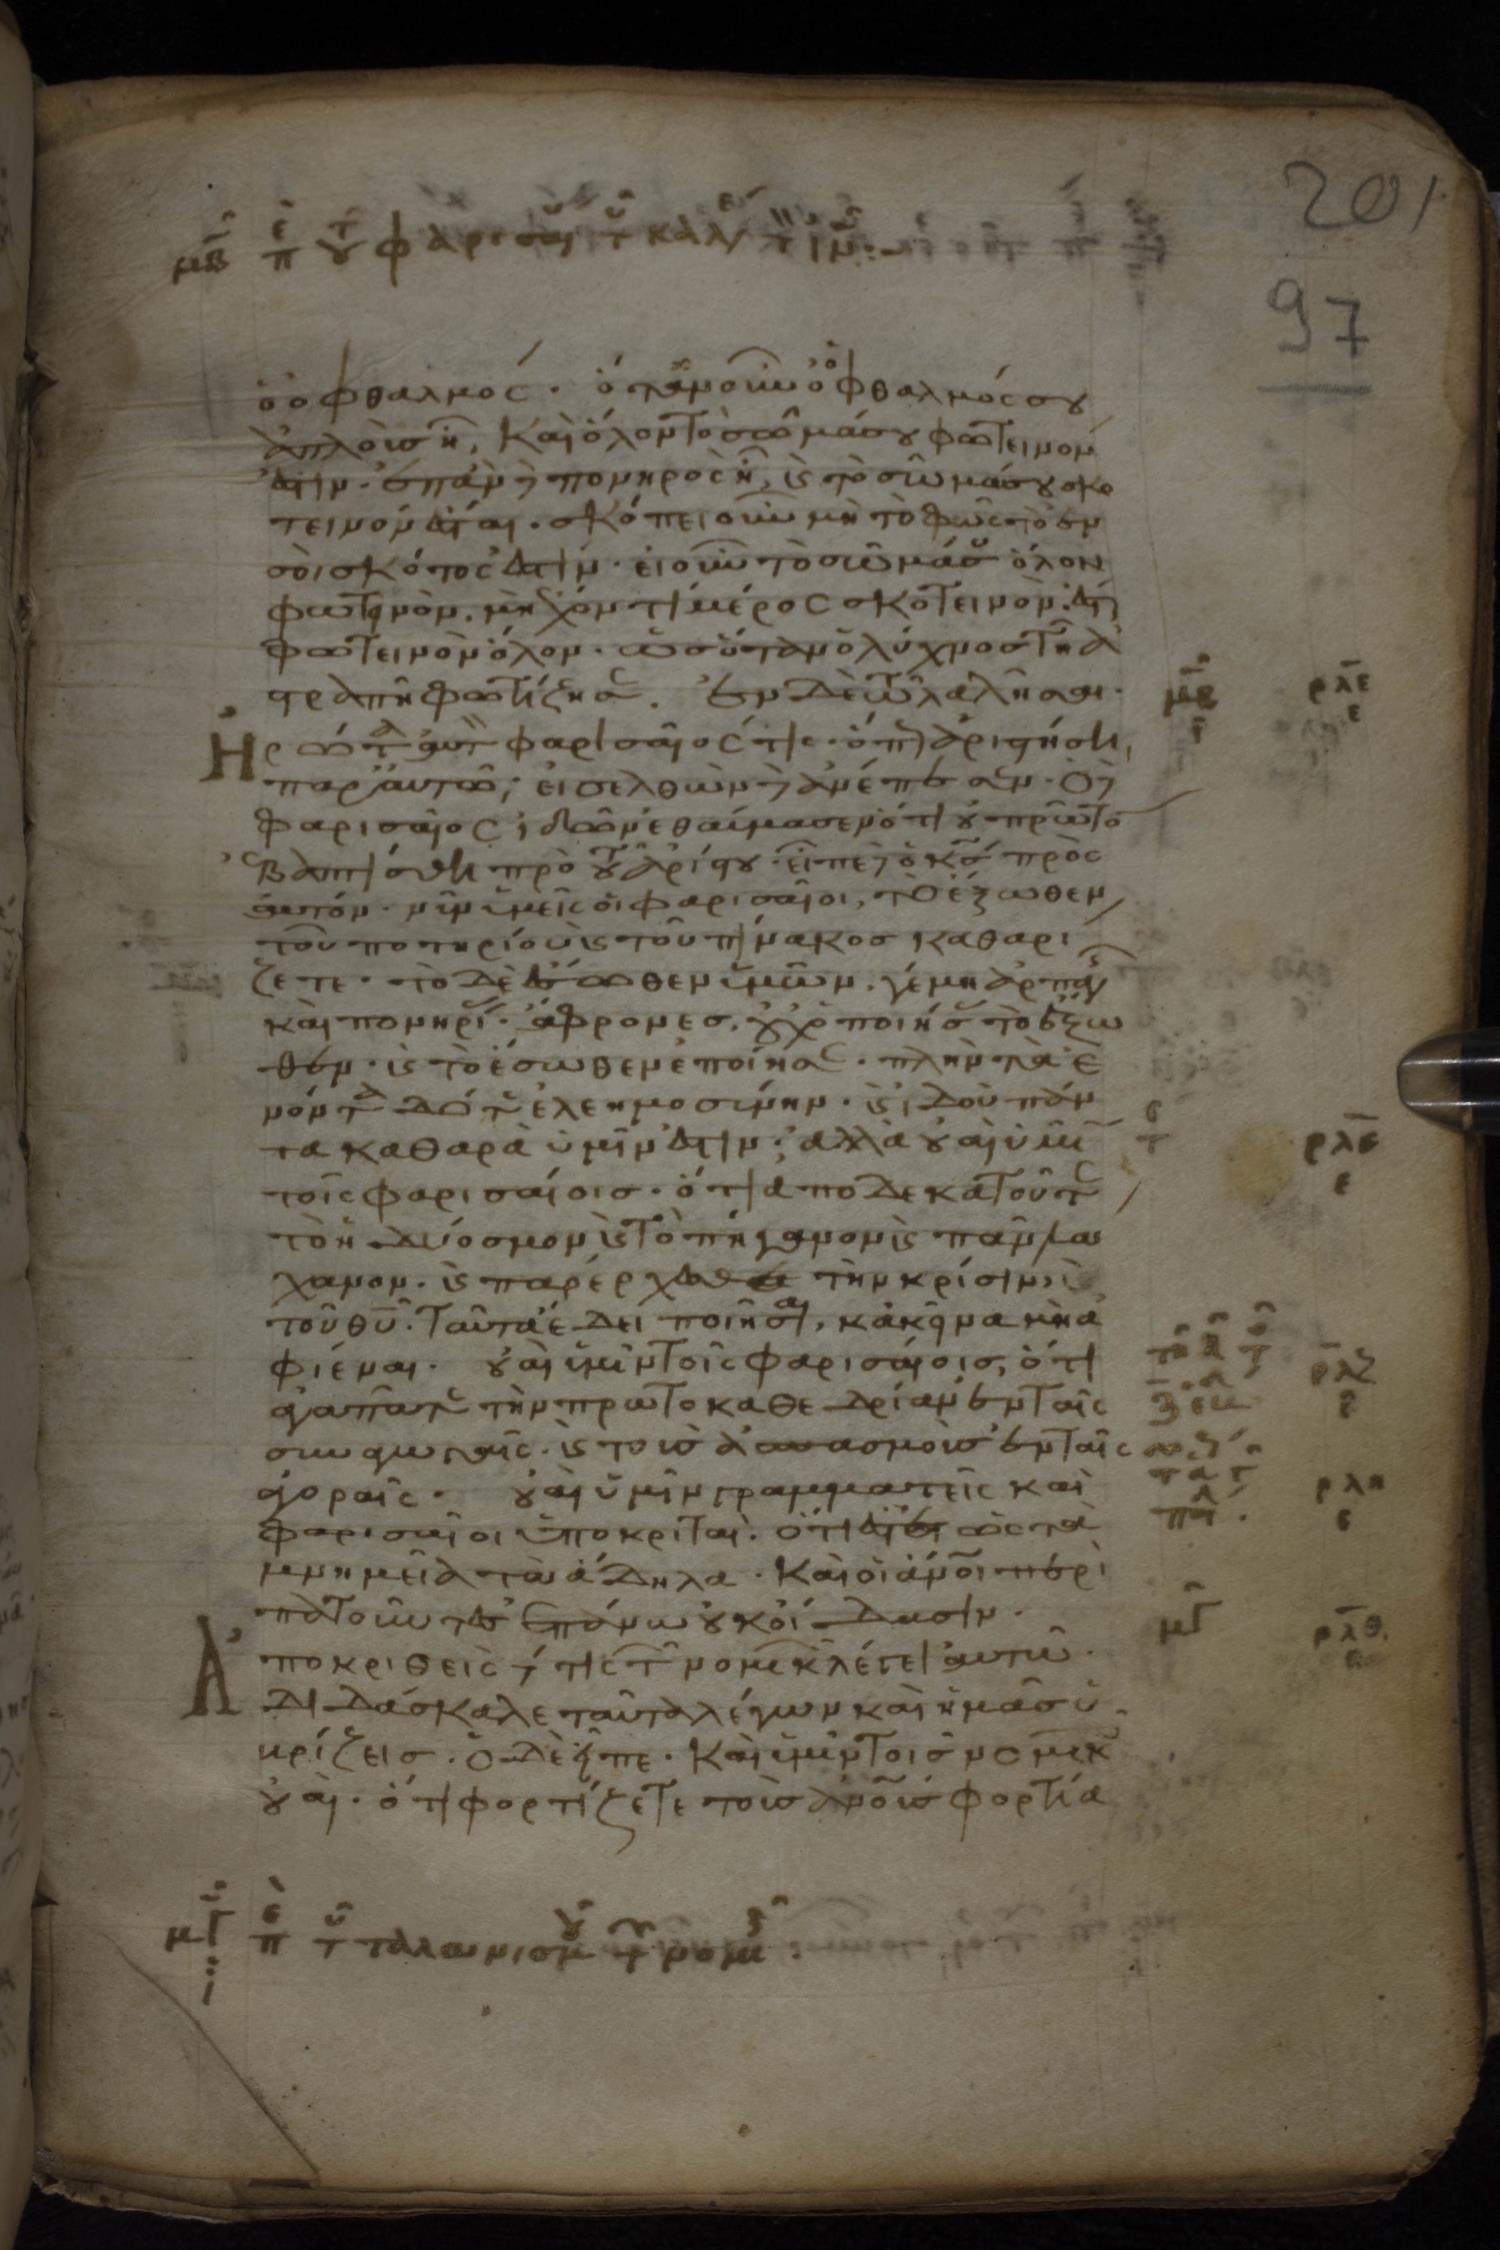 201
97
μβ περι του φαρισαιου του καλεσαντος τον ιν
ὁ ὀφθαλμός. ὅταν οὖν ὁ ὀφθαλμός σου
ἁπλοῦς ῇ, καὶ ὅλον τὸ σῶμά σου φωτεινόν
ἐστιν. ἐπὰν δὲ πονηρὸς ῇ, καὶ τὸ σῶμά σου σκο
τεινόν ἐσται. σκόπει οὖν μὴ τὸ φῶς τὸ ἐν
σοὶ σκότος ἐστίν. εἰ οὖν τὸ σῶμά σου ὅλον
φωτεινὸν, μὴ ἔχον τι μέρος σκοτεινὸν, ἔσται
φωτεινὸν ὅλον. ὡς ὅταν ὁ λύχνος τῇ ἀ
στραπῇ φωτίζῃ σε. ἐν δὲ τῷ λαλῆσαι
Ἠρώτα αὐτὸν φαρισαῖός τις ὅπως ἀριστήσῃ
παρ' αὐτῷ, εἰσελθὼν δὲ ἀνέπεσεν. ὁ δὲ
φαρισαῖος ἰδὼν ἐθαύμασεν ὅτι οὐ πρῶτο
ἐβαπτίσθη πρὸ τοῦ ἀρίστου. εἶπε δὲ ὁ κς πρὸς
αὐτόν. νῦν ὑμεῖς οἱ φαρισαῖοι, τὸ ἔξωθεν
τοῦ ποτηρίου καὶ τοῦ πίνακος καθαρί
ζετε. τὸ δὲ ἔσωθεν ὑμῶν, γέμει ἁρπαγῆς
καὶ πονηρίας. ἄφρονες, οὐχ ὁ ποιήσας τὸ ἔξω
θεν καὶ τὸ ἔσωθεν ἐποίησε. πλὴν τὰ ἐ
νόντα δότε ἐλεημοσύνην. καὶ ἰδοὺ πάν
τα καθαρὰ ὑμῖν ἐστιν. ἀλλὰ οὐαὶ ὑμῖν
τοῖς φαρισαίοις. ὅτι ἀποδεκατοῦτε
τὸ ἡδύοσμον καὶ τὸ πήγανον καὶ πᾶν λά
χανον. καὶ παρέρχεσθε τὴν κρίσιν καὶ
τοῦ θῦ. ταῦτα ἔδει ποιῆσαι, κἀκεῖνα μὴ ἀ
φιέναι. οὐαὶ ὑμῖν τοῖς φαρισαίοις, ὅτι
ἀγαπᾶτε τὴν πρωτοκαθεδρίαν ἐν ταῖς
συναγωγαῖς. καὶ τοὺς ἀσπασμοὺς ἐν ταῖς
ἀγοραῖς. οὐαὶ ὑμῖν γραμματεῖς καὶ
φαρισαῖοι ὑποκριταί. ὅτι ἐστὲ ὡς τὰ
μνημεῖα τὰ ἄδηλα. καὶ οἱ ἄνοι περι
πατοῦντες ἐπάνω οὐκ οἴδασιν.
Ἀποκριθεὶς δέ τις τῶν νομικῶν λέγει αὐτῷ.
διδάσκαλε ταῦτα λέγων καὶ ἡμᾶς ὑ
βρίζεις. ὁ δὲ εἶπε. καὶ ὑμῖν τοῖς νομικοῖς
οὐαί. ὅτι φορτίζετε τοὺς ἀνοὺς φορτία
μβ
ρλε
ε
ρλς
ε
ρλζ
β
ρλη
ε
μγ
ρλθ
μγ περι του ταλανισμου των νομικων